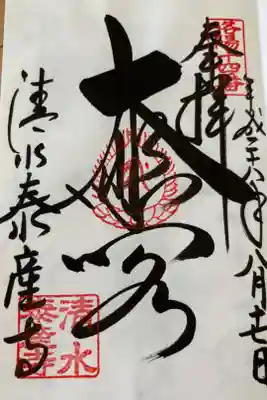 平成二十八年八月十七日
洛陽十四番
奉拝
大悲閣
清水泰産寺
清水
泰産寺